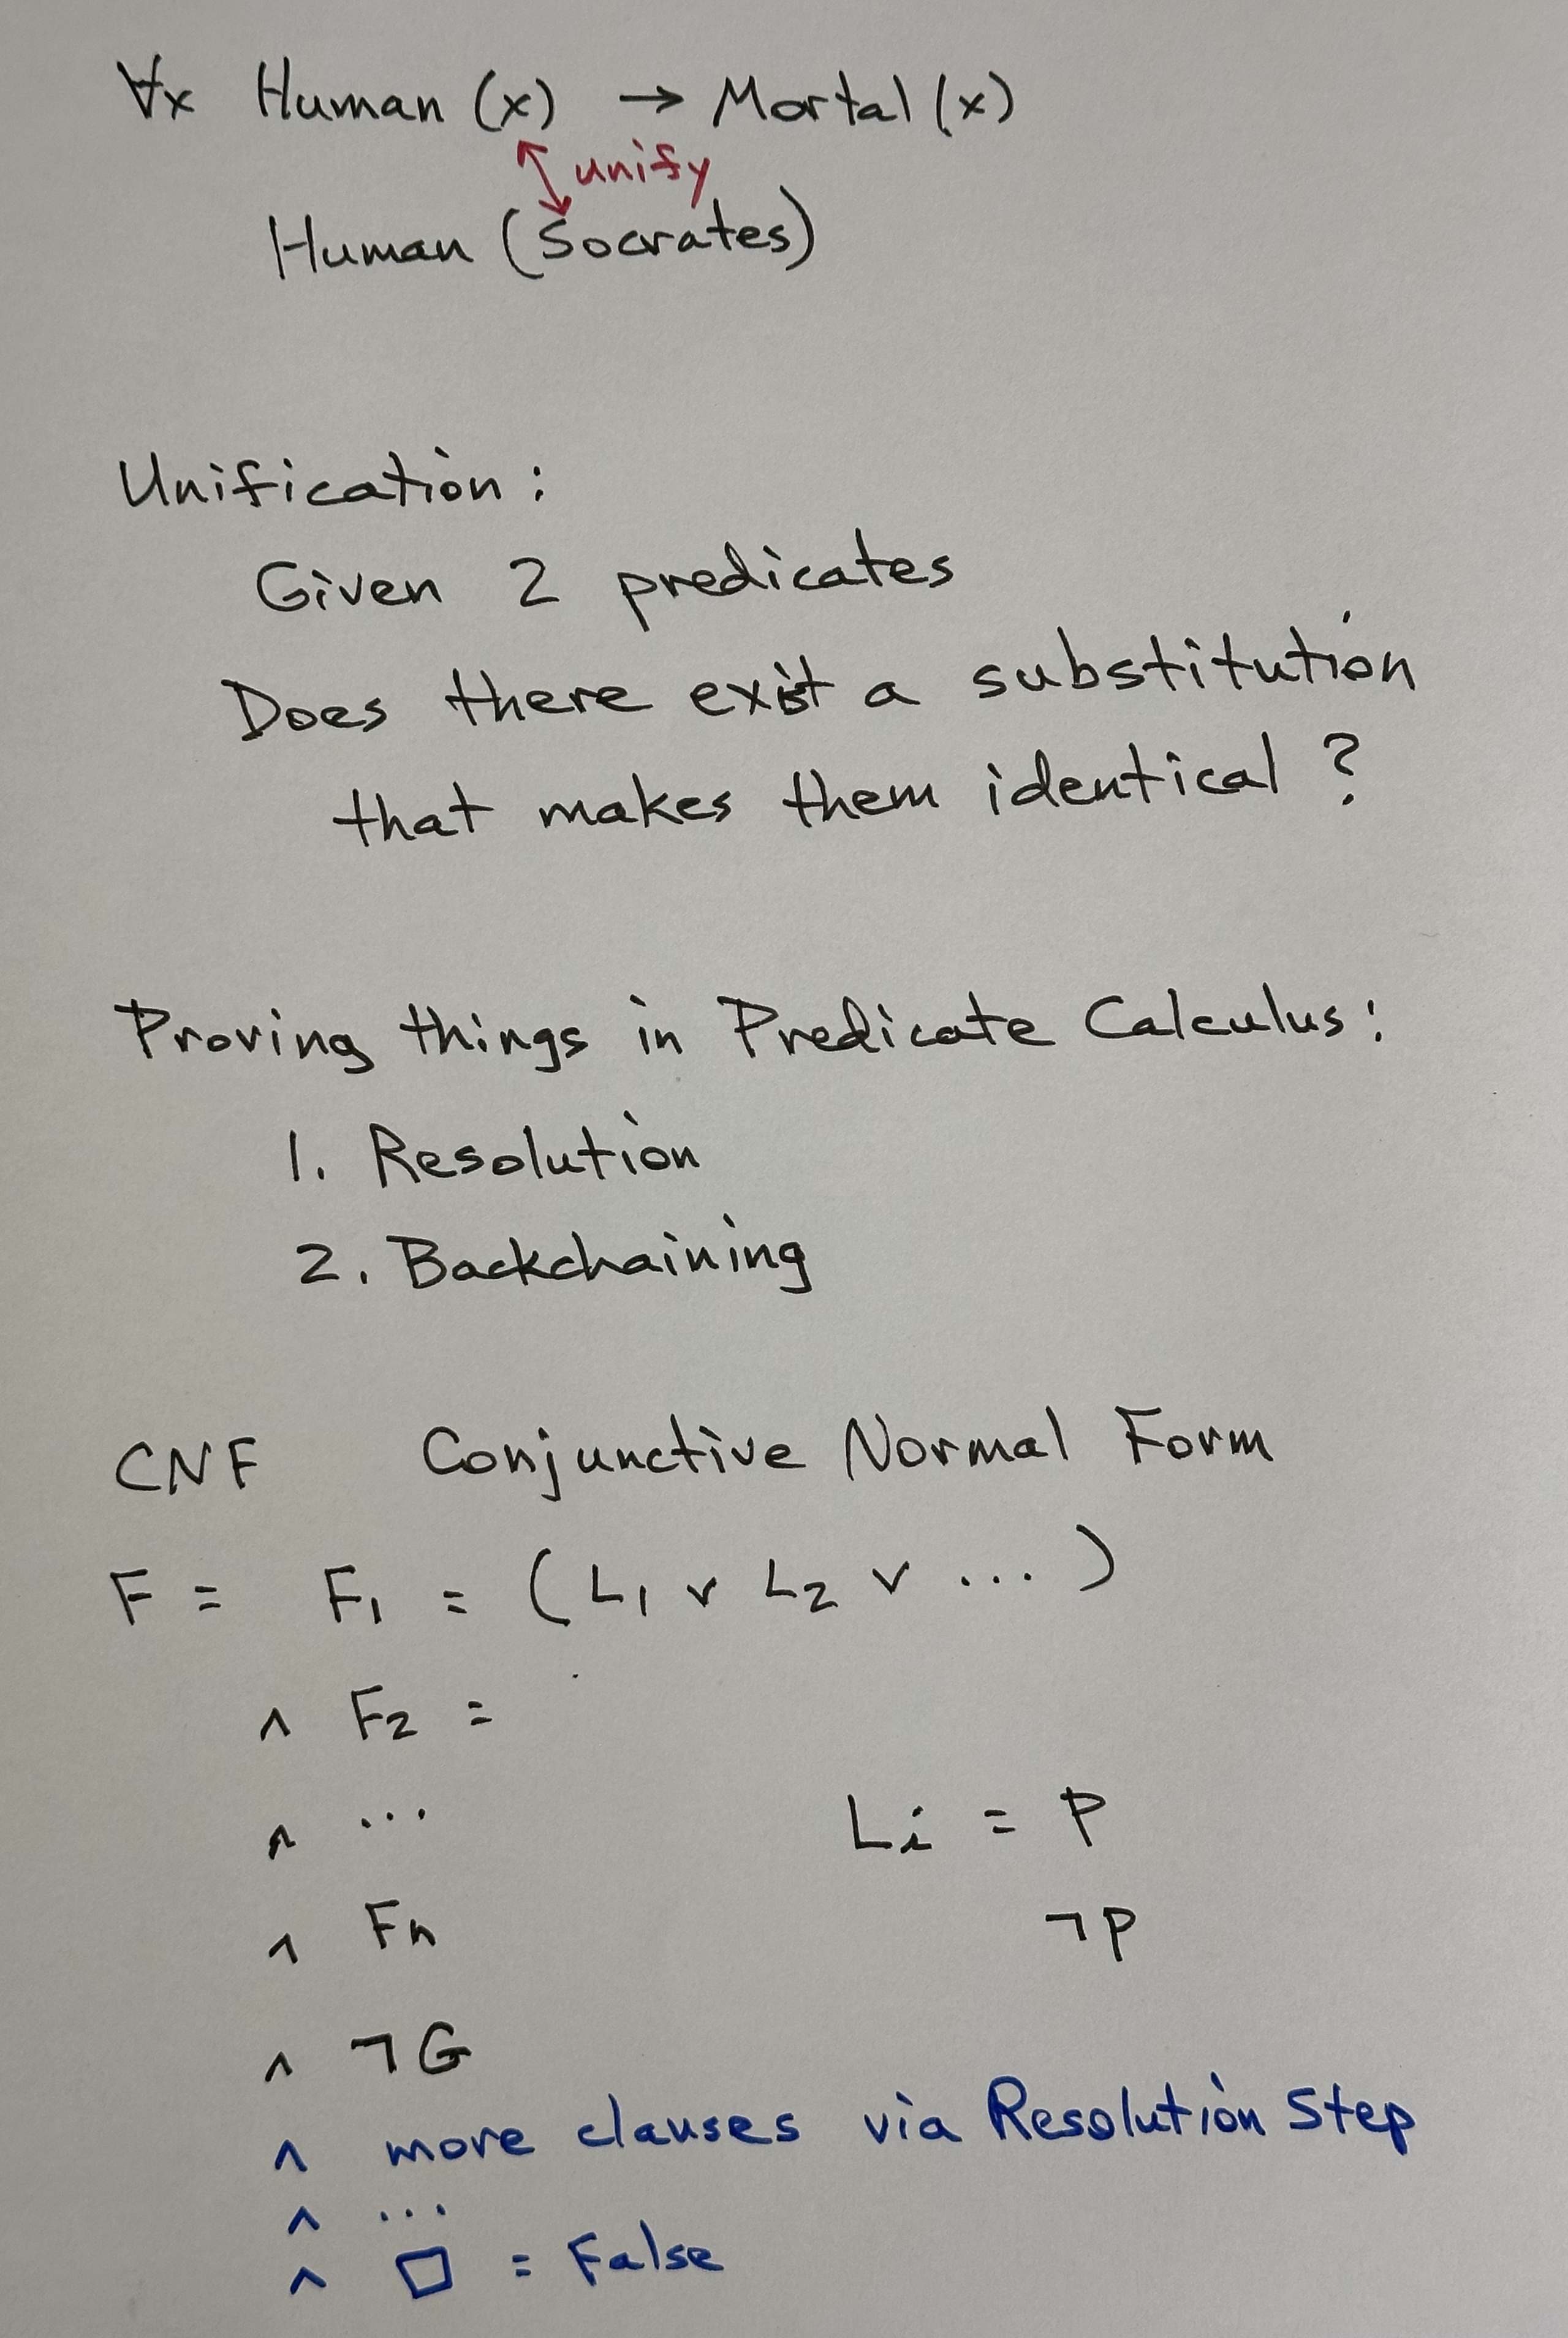 ∀x Human (x) → Mortal (x)
unify
Human (Socrates)
Unification:
Given 2 predicates
Does there exist a substitution
that makes them identical ?
Proving things in Predicate Calculus:
1. Resolution
2. Backchaining
CNF Conjunctive Normal Form
F = F1 = (L1 ∨ L2 ∨ ...)
∧ F2 =
∧ ...
Li = P
∧ Fn
¬P
∧ ¬G
∧ more clauses via Resolution Step
∧ ...
∧ □ = False